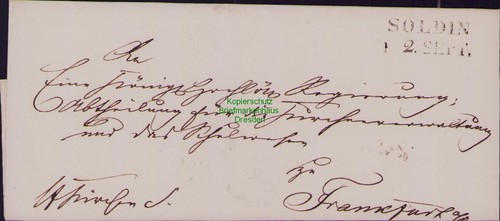 SOLDIN
2. SEPT.
An
Eine Königl. Hochlöbl. Regierung,
Abtheilung für die Kirchenverwaltung
und das Schulwesen
Kopierschutz
Briefmarkenhaus
Dresden
zu
Kirchen S. Frankfurt a/O